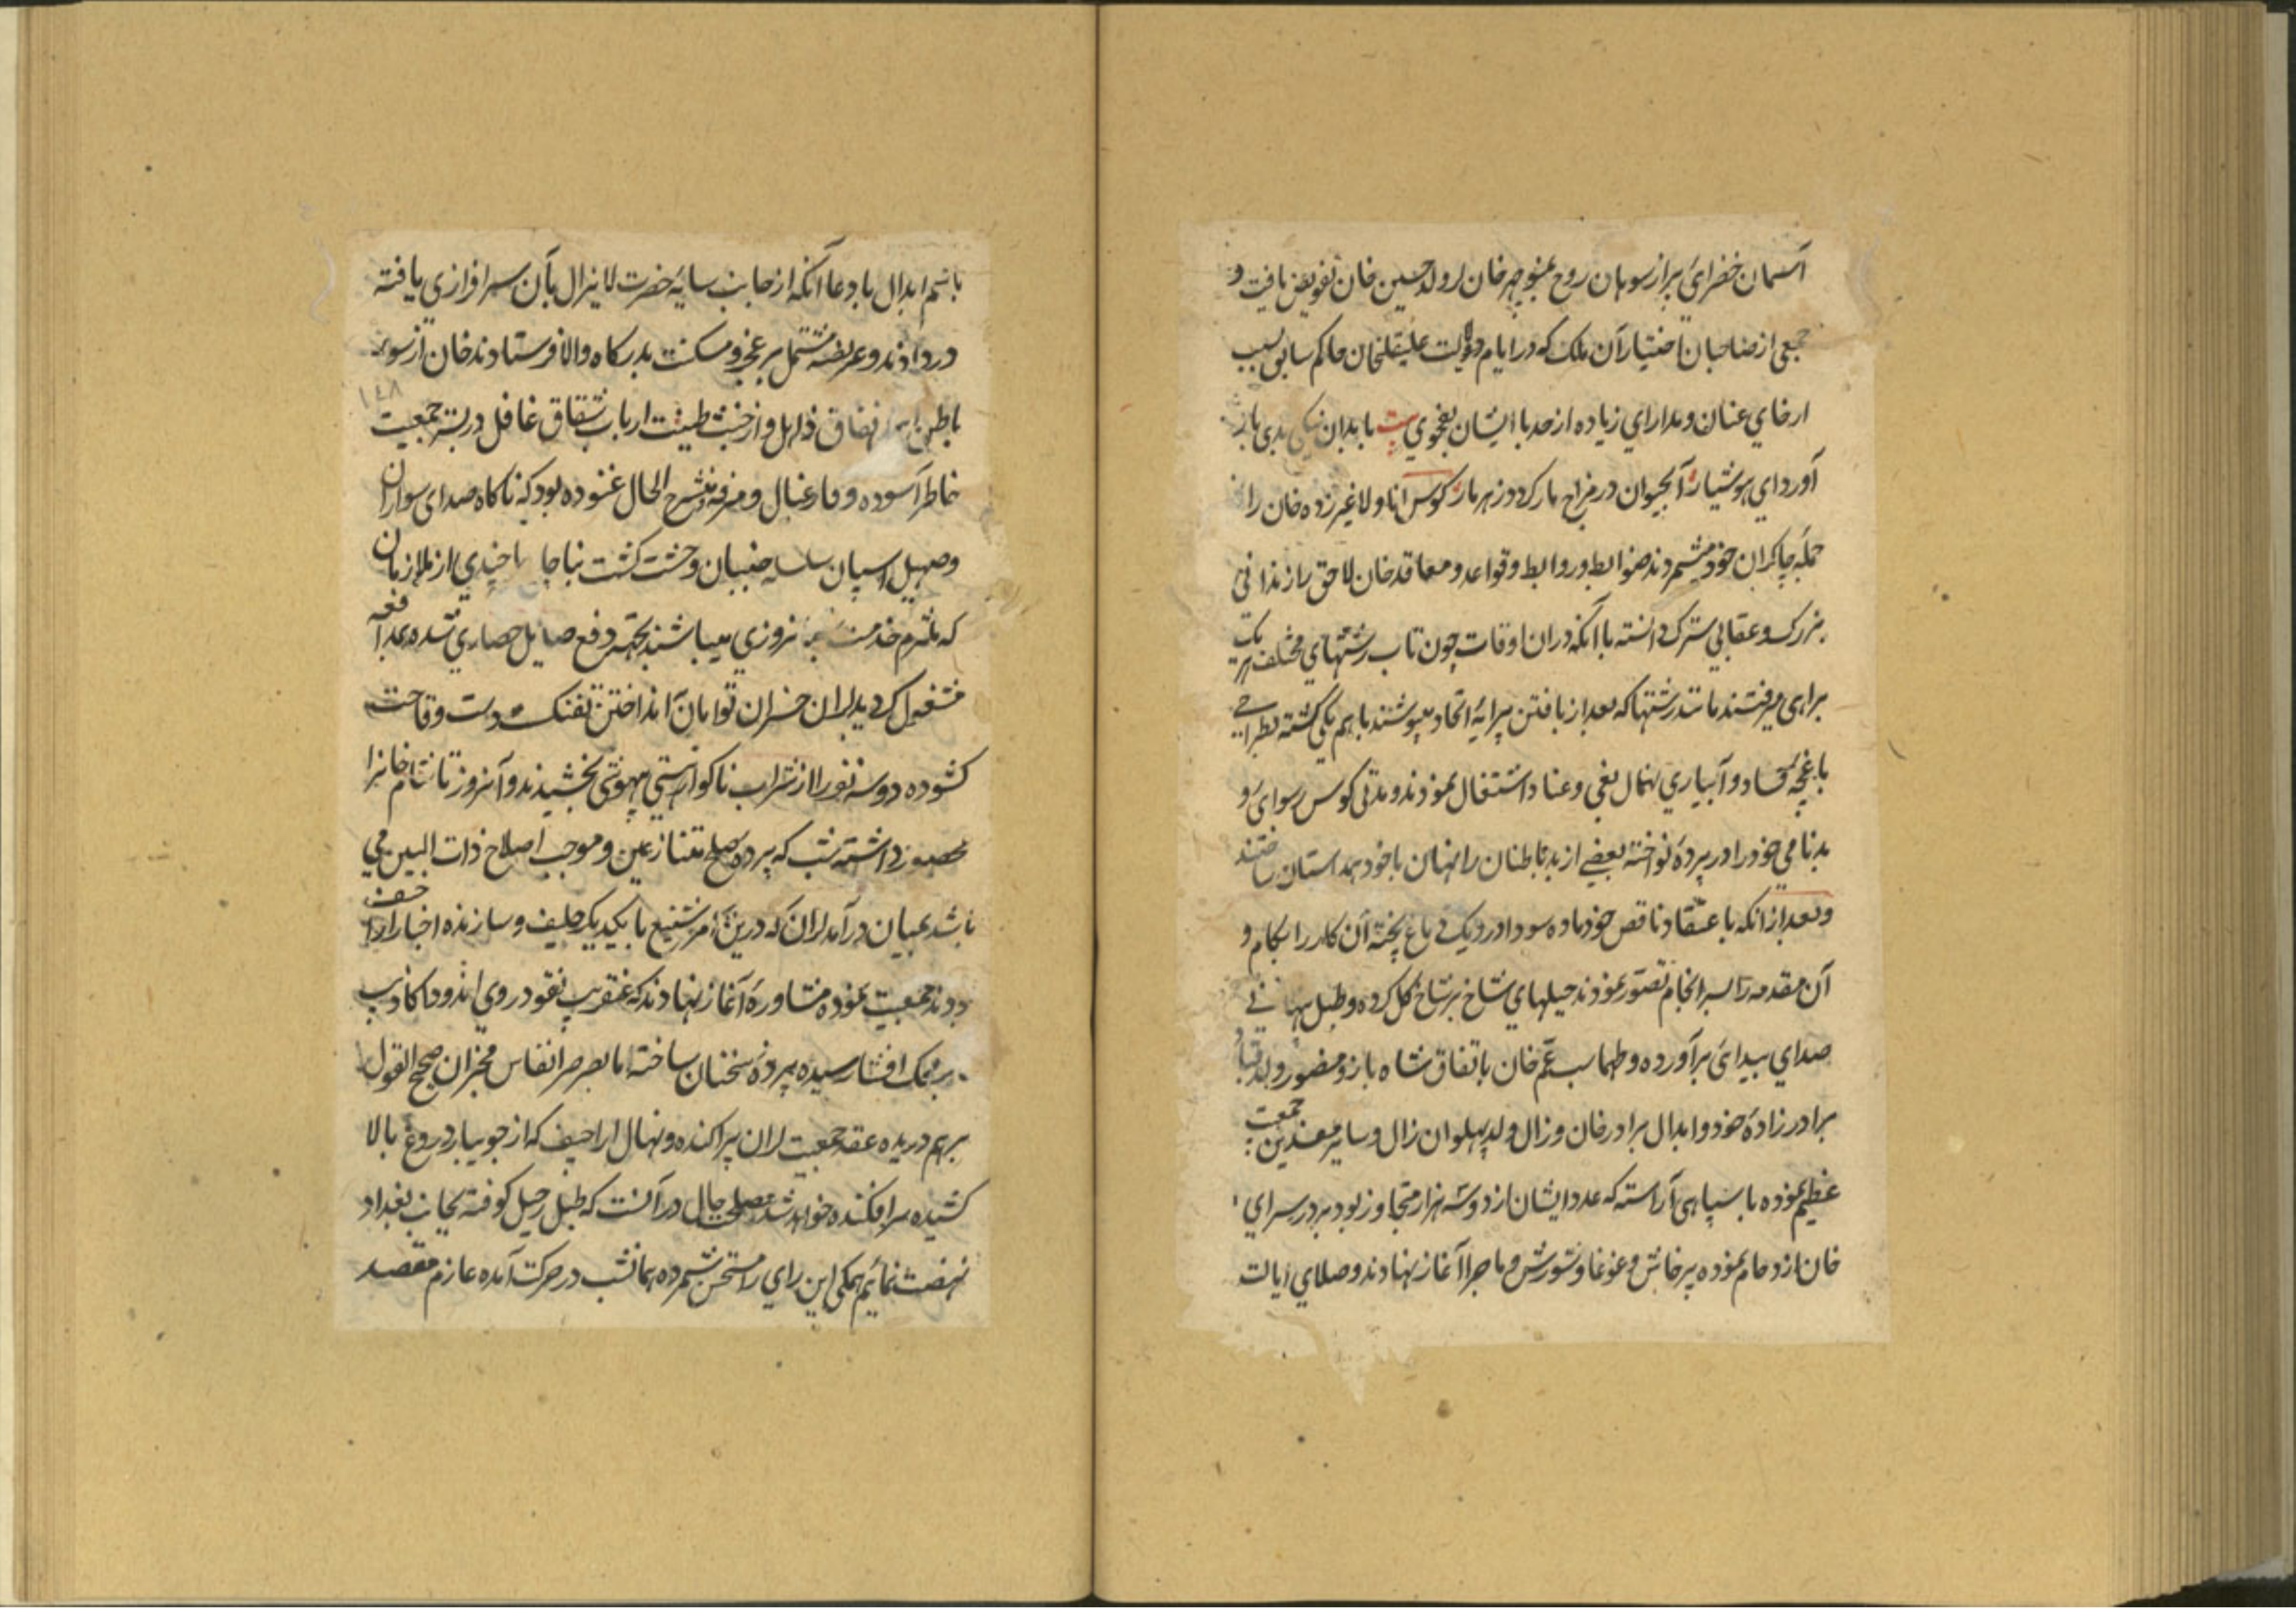 آسمان خضرای براز سوهان روح بمنوچهر خان لر ولد حسین خان تفویض یافت و
جمعی از صاحبان اختیار آن ملک که در ایام دولت علیقلیخان حاکم سابق بسبب
ارخای عنان و مدارای زیاده از حد با ایشان بفحوی بیت با بدان نیکی بدی بار
آورد ای هوشیار آب حیوان در مزاج مار گردد زهر مار کوس انا و لا غیر زده خان را
جمله چاکران خود میشمردند ضوابط و روابط و قواعد و معاقد خان لاحق را نادانی
بزرک و عقابی سترک دانسته با آنکه در ان اوقات چون تاب رشتهای مختلف هر یک
براهی میرفتند مانند رشتها که بعد از بافتن پیرایه اتحاد میپوشند باهم یکی گشته بطراحی
باغچه فساد و آبیاری نهال بغی و عناد اشتغال نمودند و مدتی کوس رسوای و
بدنامی خود را در پرده نواخته بعضی از بد باطنان را نهان با خود همداستان ساختند
و بعد از انکه باعتقاد ناقص خود ماده سودا در دیک دماغ پخته آن کار را بکام و
آن مقدمه را بسر انجام تصور نمودند حیلهای شاخ بر شاخ گل کرده و طبل پنهانی
صدای پیدائی برآورده و طهماسب عم خان باتفاق شاه باز و منصور ولد قباد
برادر زاده خود و ابدال برادر خان و زال ولد پهلوان زال و سایر مفسدین جمعیت
عظیم نموده با سپاهی آراسته که عدد ایشان از دو سه هزار متجاوز بود بر در سرای
خان ازدحام نموده پرخاش و غوغا و شورش و ماجرا آغاز نهادند و صلای ایالت
باسم ابدال با وجود آنکه از جانب سایه حضرت لایزال بآن سرافرازی یافته
در دادند و عریضه مشتمل بر عجز و مسکنت بدرکاه والا فرستادند خان از سوء
۱۴۸
باطن اهل نفاق ذاهل و از خبث طینت ارباب شقاق غافل در بستر جمعیت
خاطر آسوده و فارغبال و مرفه و منشرح الحال غنوده بود که ناکاه صدای سواران
و صهیل اسپان سلسله جنبان وحشت کشت بناچار با چندی از ملازمان
که ملتزم خدمت شبانروزی میباشند بجهة دفع صایل حصاری شده بمدافعه
مشغول کردید لران خسران توامان بانداختن تفنک دست وقاحت
کشوده دو سه نفر را از شراب ناکوار نیستی بیهوشی بخشیدند و آنروز تا شام خانرا
محصور داشته شب که پرده صلح متنازعین و موجب اصلاح ذات البین می
باشد بمیان در آمد لران که درین امر شنیع با یکدیکر حلیف و سازنده اخبار اراجیف
بودند جمعیت نموده مشاوره آغاز نهادند که عنقریب نقود روی اندود اکاذیب
بر محک افشا رسیده پرده سخنان ساخته ما بصرصر انفاس مخبران صحیح القول
برهم دریده عقد جمعیت لران پراکنده و نهال اراجیف که از جویبار دروغ بالا
کشیده سرافکنده خواهد شد مصلحت حال در آنست که طبل رحیل کوفته بجانب بغداد
نهضت نمائیم همکی این رای را مستحسن شمرده همانشب در حرکت آمده عازم مقصد